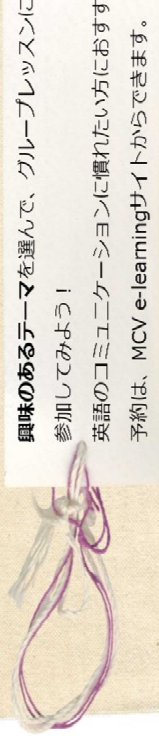 興味のあるテーマを選んで、グループレッスンに
参加してみよう！
英語のコミュニケーションに慣れたい方におすす
予約は、MCV e-learningサイトからできます。